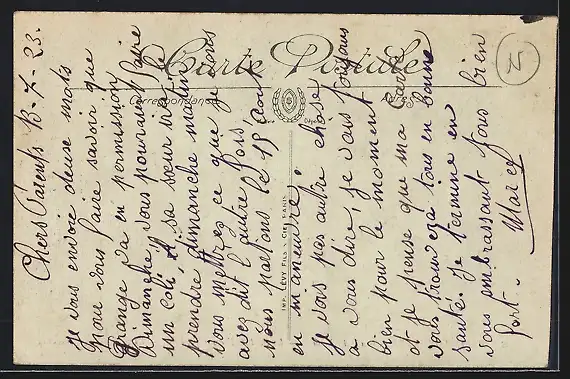 Carte Postale
Correspondance
Adresse
IMP. LÉVY FILS & CIE, PARIS
Chers Parents 13-7-23.
je vous envoie deuse mots
pour vous faire savoir que
Grange va en permission
Dimanche vous pourait faire
un coli, à sa sœur ira le
prendre dimanche matin
vous mettrez ce que je vous
avez dit l'autre fois,
nous partons le 15 Aout
en maneuvre.
je vois pas autre chose
a vous dire, je vais toujours
bien pour le moment
et je pense que ma Carte
vous trouvera tous en bonne
santé. je termine en
vous embrassant tous bien
fort. Marcel